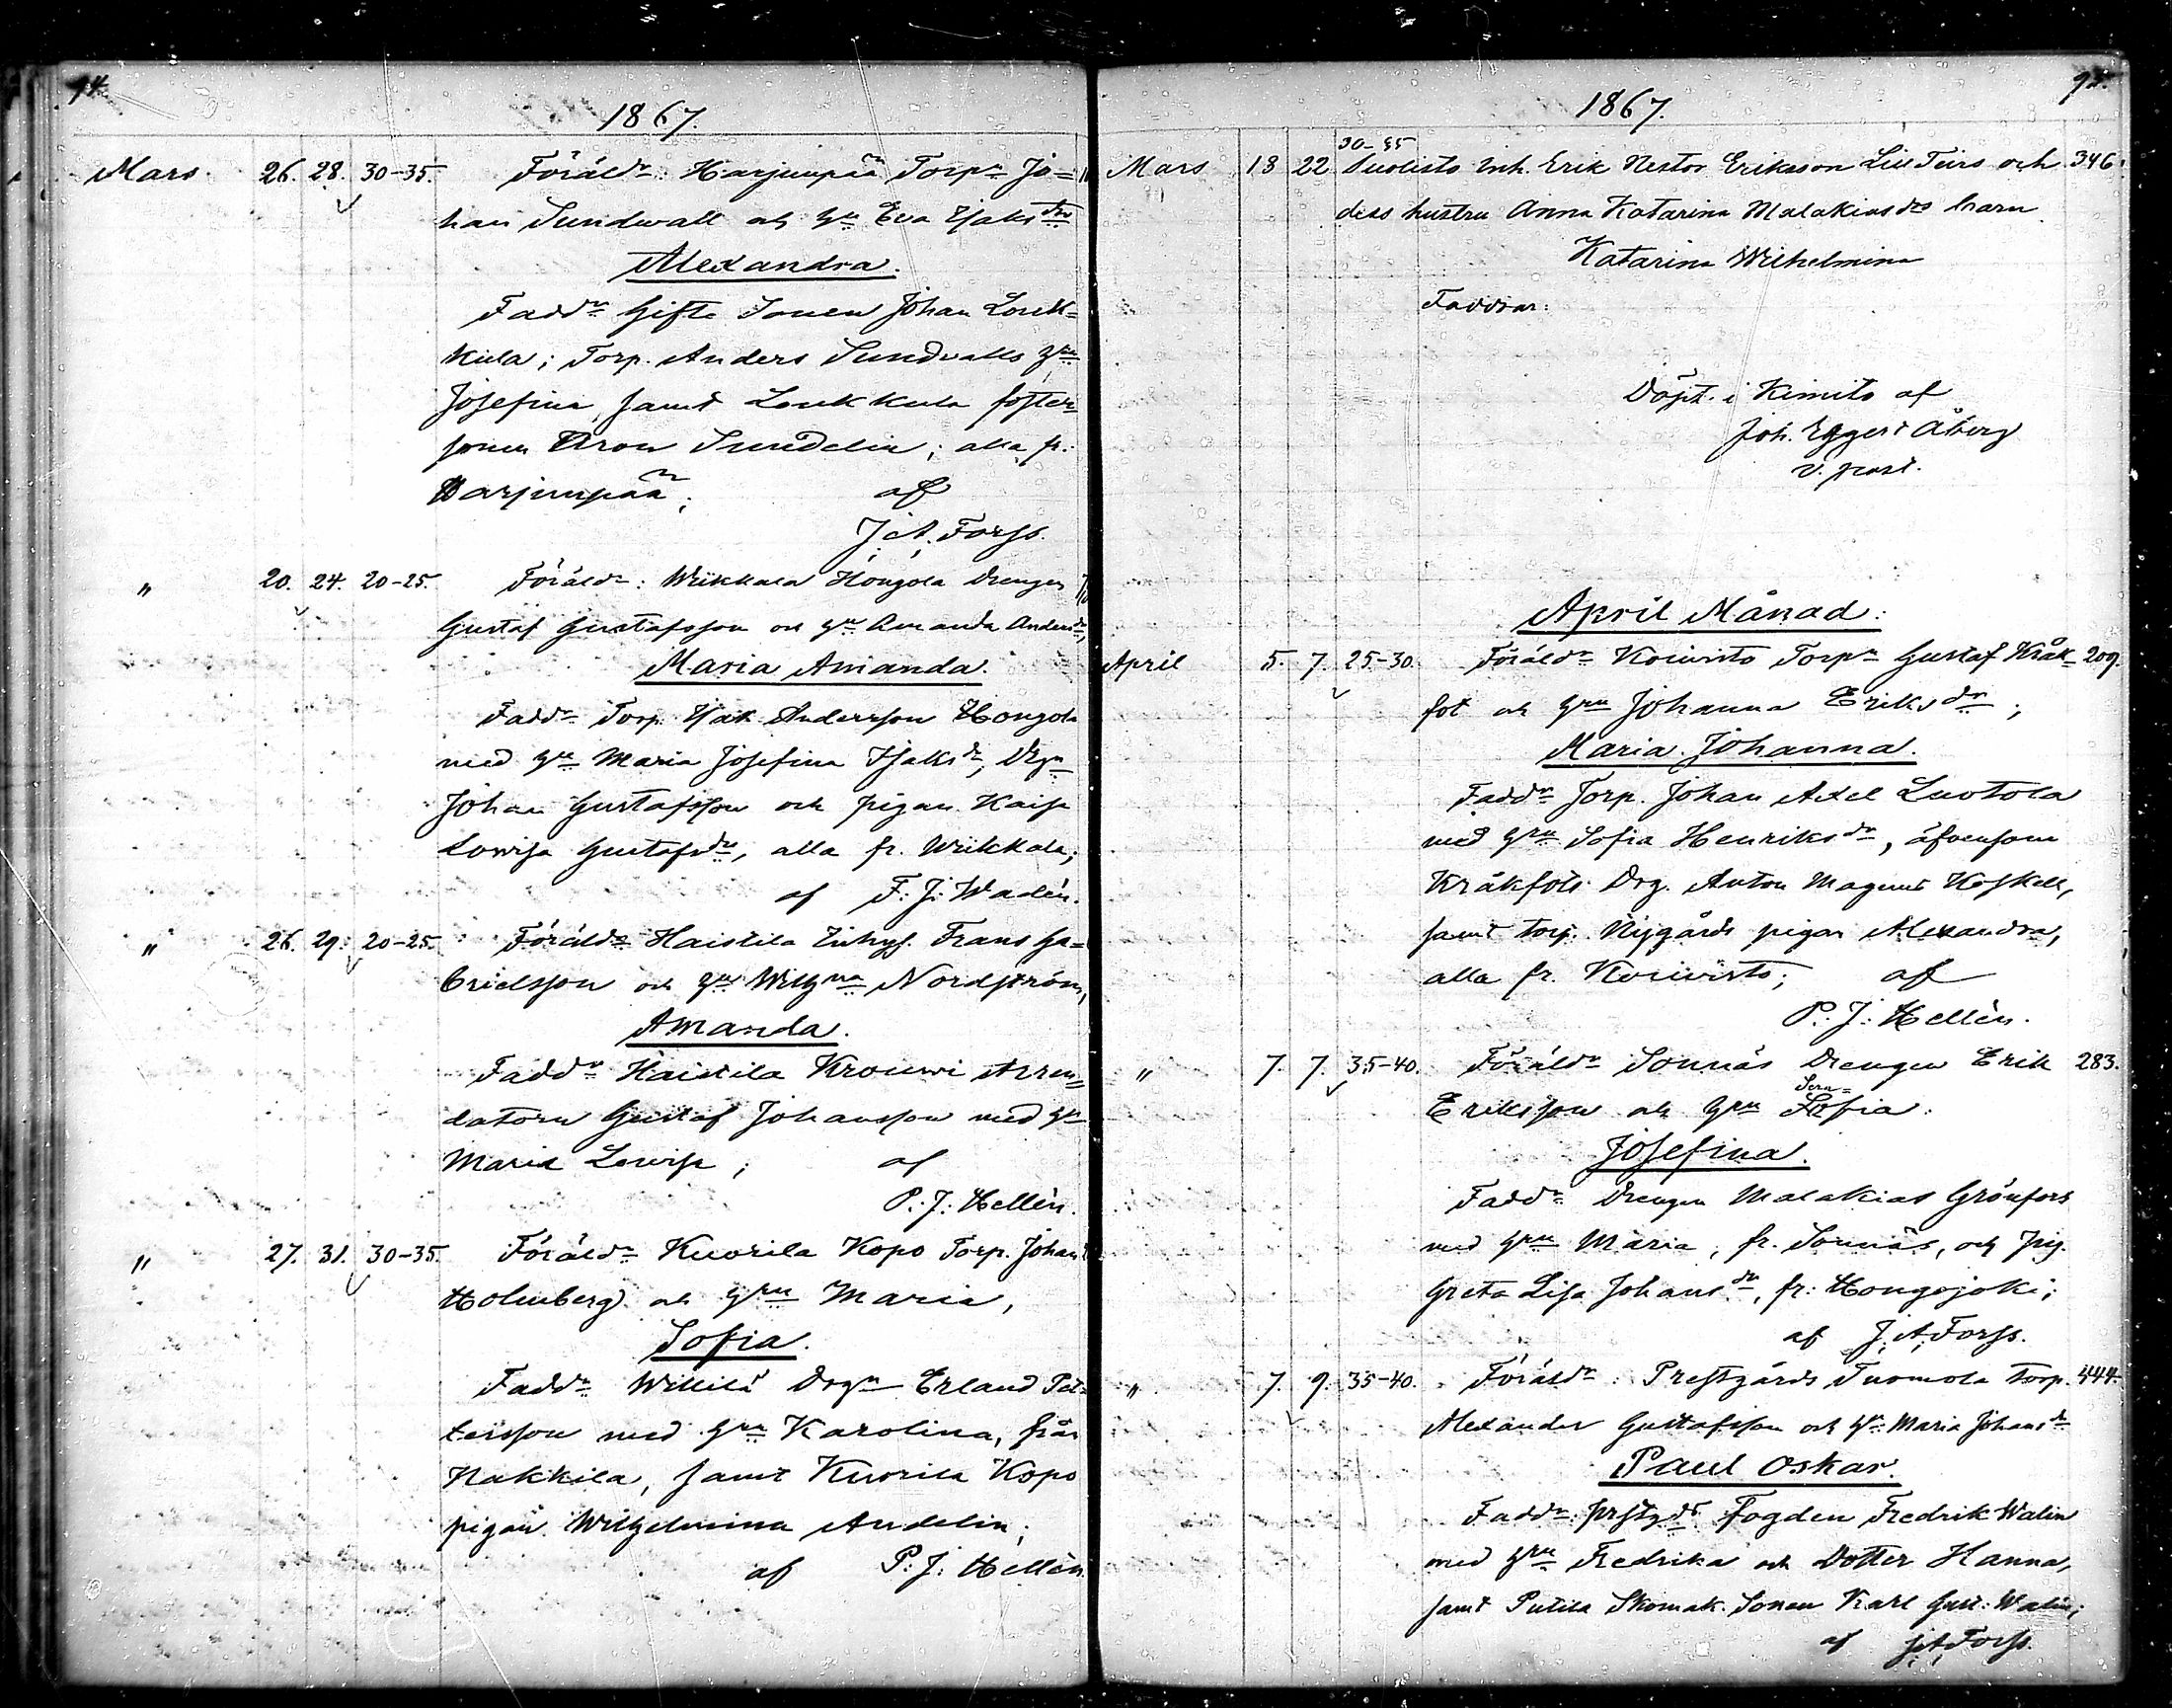 94.
1867.
Mars 26. 28. 30-35. Föräldr: Harjunpää Torpn Jo=
han Sundwall och hu Eva Isaksdtr
Alexandra.
Faddr Gifte Sonen Johan Louk=
kula; Torp. Anders Sundwalls hru
Josefina, samt Loukkula foster
sonen Aron Sundelin; alla fr.
Harjunpää; af
J. A. Forss.
" 20. 24. 20-25. Föräldr: Wiikkala Hongola Drengen
Gustaf Gustafsson och hu Amanda Andersdr,
Maria Amanda.
Faddr Torp. Isak Andersson Hongola
med hu Maria Josefina Isaksdr, Drgn
Johan Gustafsson och pigan Kaisa
Lovisa Gustafsdr, alla fr. Wiikkala;
af F. J. Wadén.
" 26. 29. 20-25. Föräldr Haistila Inhys. Frans Ga=
brielsson och hu Wilhna Nordström,
Amanda.
Faddr Haistila Krouwi Arren=
datorn Gustaf Johansson med hu
Maria Lovisa; af
P. J. Hellén.
" 27. 31. 30-35. Föräldr Kuorila Kopo Torp. Johan
Holmberg och hru Maria,
Sofia.
Faddr Willilä Drgn Erland Pet=
tersson med hru Karolina, från
Nakkila, samt Kuorila Kopo
pigan Wilhelmina Andelin;
af P. J. Hellén
95.
1867.
30-35
Mars 18 22 Suolisto Inh. Erik Nestor Eriksson Lill Teirs och 346.
dess hustru Anna Katarina Malakiasdr barn
Katarina Wilhelmina
Faddrar:
Döpt. i Kimito af
Joh. Eggert Åberg
v. past.
April Månad:
April 5. 7. 25-30. Föräldr Koivisto Torpn Gustaf Kråk= 209.
fot och hru Johanna Eriksdr;
Maria Johanna.
Faddr Torp. Johan Axel Luotola
med hru Sofia Henriksdr, äfvensom
Kråkfots Drg. Anton Magnus Koskell,
samt torp. Nygårds pigan Alexandra,
alla fr. Koivisto; af
P. J. Hellén.
" 7. 7. 35-40. Föräldr Sonnäs Drengen Erik 283.
Sera=
Eriksson och hru Fofia.
Josefina.
Faddr Drengen Malakias Grönfors
med hru Maria, fr. Sonnäs, och pig.
Greta Lisa Johansdr, fr: Hongojoki;
af J. A. Forss.
" 7. 9. 35-40. Föräldr: Prestgårds Tuomola Torp. 444.
Alexander Gustafsson och hu Maria Johansdr
Paul Oskar.
Faddr: prstgds Fogden Fredrik Walin
med hru Fredrika och Dotter Hanna,
samt Putila Skomak. Sonen Karl Gust: Walin;
af J. A. Forss.